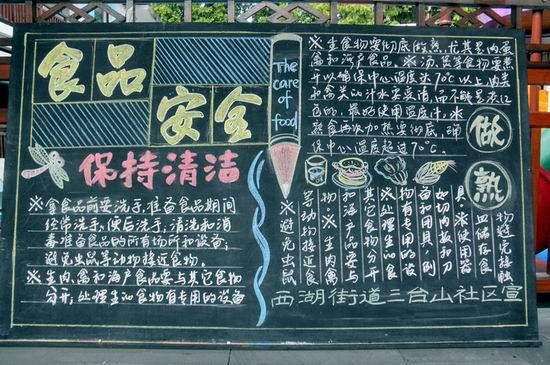 食品
安全
The
care
of
food
保持清洁
※拿食品前要洗手,准备食品期间
经常洗手,便后洗手,清洗和消
毒准备食品的所有场所和设备;
避免虫鼠等动物接近食物。
※生肉,禽和海产食品要与其它食物
分开;处理生的食物有专用的设备
※生食物要彻底的熟,尤其是肉蛋
禽和海产食品。※汤、煲等食物要煮
开以确保中心温度达70℃以上,肉类
和禽类的汁水要变清,而不能是淡红
色的,最好使用温度计;
熟食再次加热要彻底,确
保中心温度超过70℃。
做
熟
物避免接触
血储存食
具※使用器
如切肉款和刀
备和用具,例
物有专用的设
※处理生的食
其它食物分开
和海产品要与
物。※生肉禽
等动物接近食
※避免虫鼠
西湖街道三台山社区宣